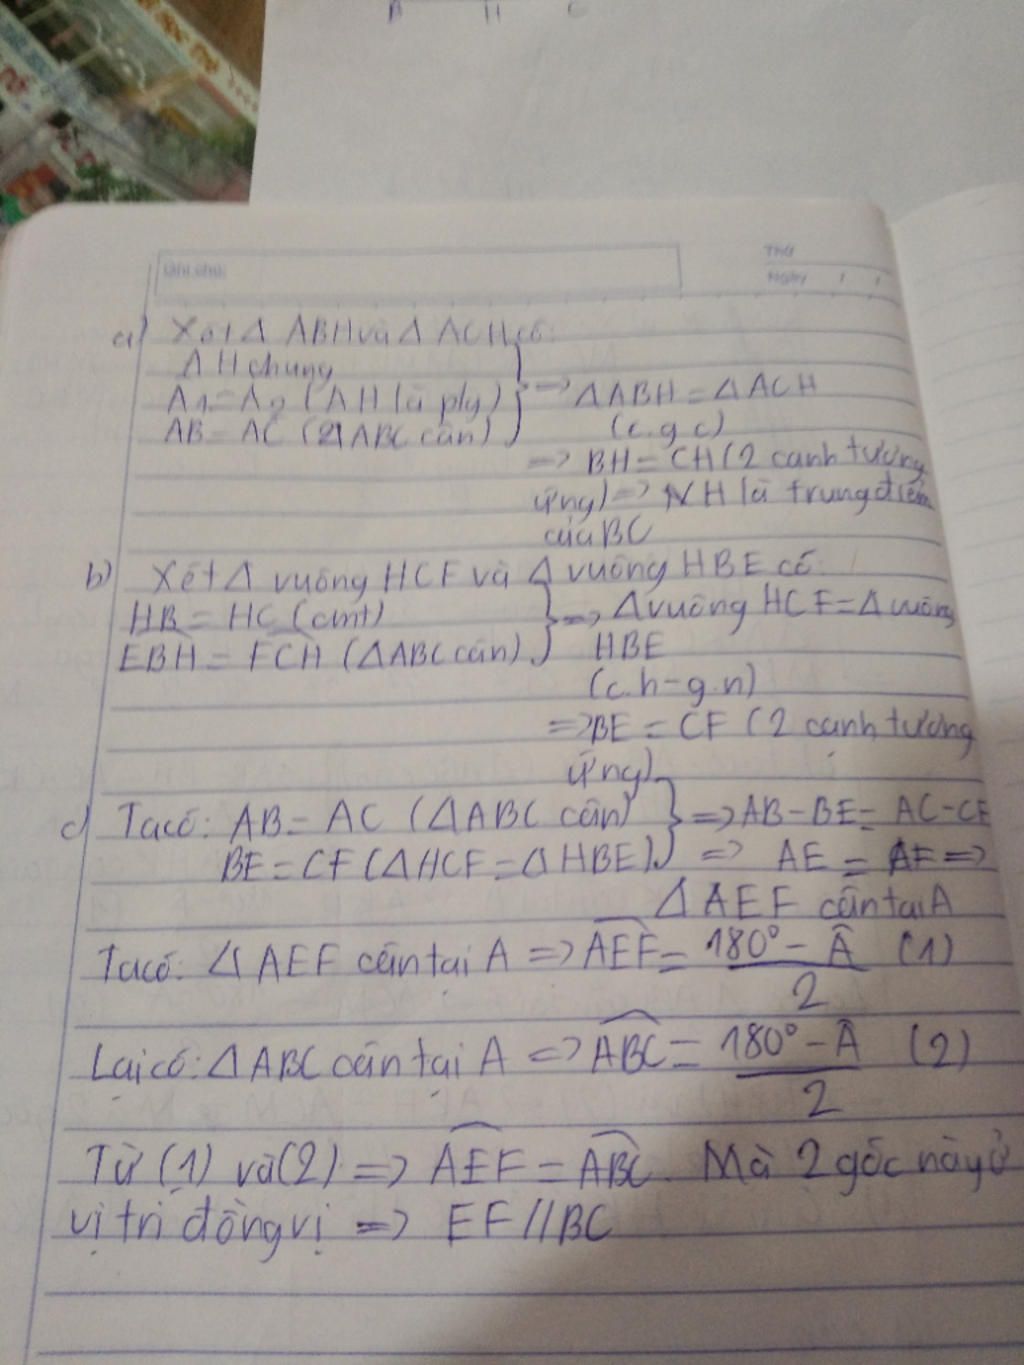 B H C
Ghi chú:
Thứ
Ngày / /
a) Xét Δ ABH và Δ ACH có:
AH chung
A1 = A2 (AH là p/g) } => ΔABH = ΔACH
AB = AC (ΔABC cân) (c.g.c)
=> BH = CH (2 cạnh tương
ứng) => H là trung điểm
của BC
b) Xét Δ vuông HCF và Δ vuông HBE có:
HB = HC (cmt) } => Δ vuông HCF = Δ vuông
EBH = FCH (ΔABC cân) HBE
(c.h - g.n)
=> BE = CF (2 cạnh tương
ứng)
c) Ta có: AB = AC (ΔABC cân) } => AB - BE = AC - CF
BE = CF (ΔHCF = ΔHBE) => AE = AF =>
ΔAEF cân tại A
Ta có: ΔAEF cân tại A => AEF = 180° - Â (1)
2
Lại có: ΔABC cân tại A => ABC = 180° - Â (2)
2
Từ (1) và (2) => AEF = ABC. Mà 2 góc này ở
vị trí đồng vị => EF // BC